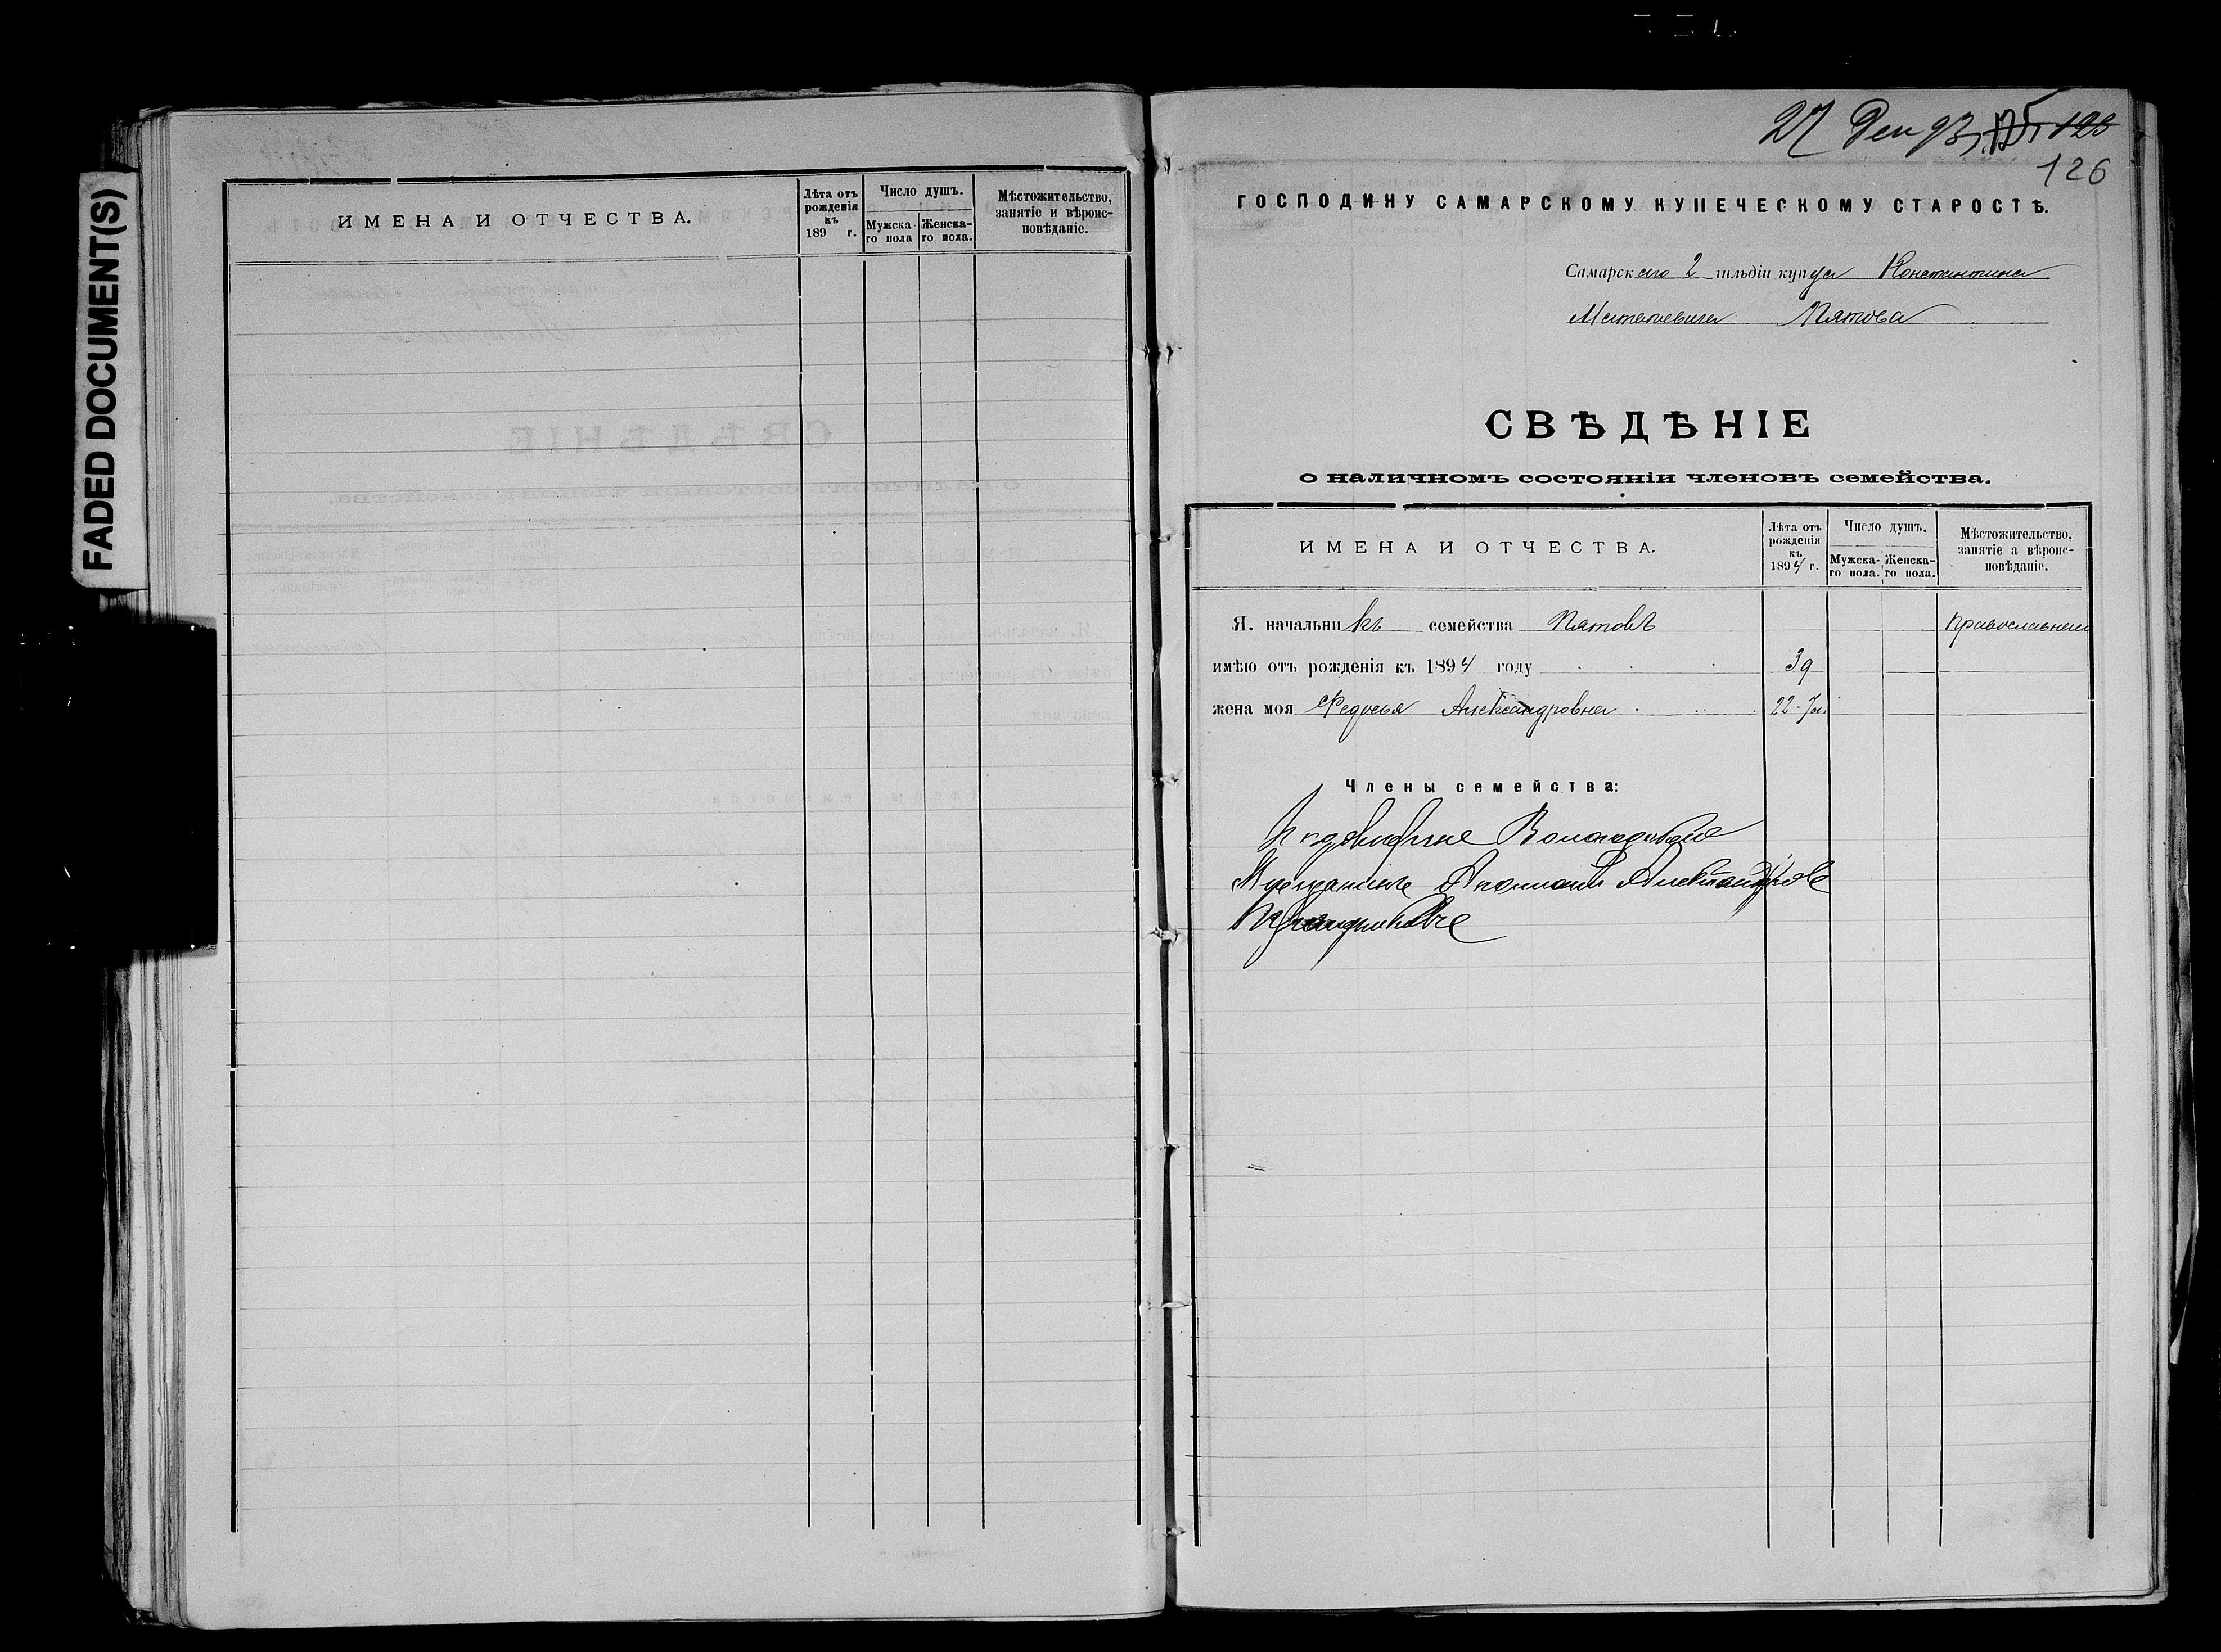 FADED DOCUMENT(S)
ИМЕНА И ОТЧЕСТВА.
Лѣта отъ рожденія къ 189 г.
Число душъ.
Мужска-го пола
Женска-го пола.
Мѣстожительство, занятіе и вѣроис-повѣданіе.
27 Дек 93
123
126
ГОСПОДИНУ САМАРСКОМУ КУПЕЧЕСКОМУ СТАРОСТѢ.
Самарскаго 2 гильдіи купца Константина
Пятова
СВѢДѢНІЕ
о наличномъ состояніи членовъ семейства.
ИМЕНА И ОТЧЕСТВА.
Лѣта отъ рожденія къ 1894 г.
Число душъ.
Мужска-го пола.
Женска-го пола.
Мѣстожительство, занятіе а вѣроис-повѣданіе.
Я. начальникъ семейства Пятовъ
имѣю отъ рожденія къ 1894 году 39
жена моя Федосья Александровна 22
Члены семейства: